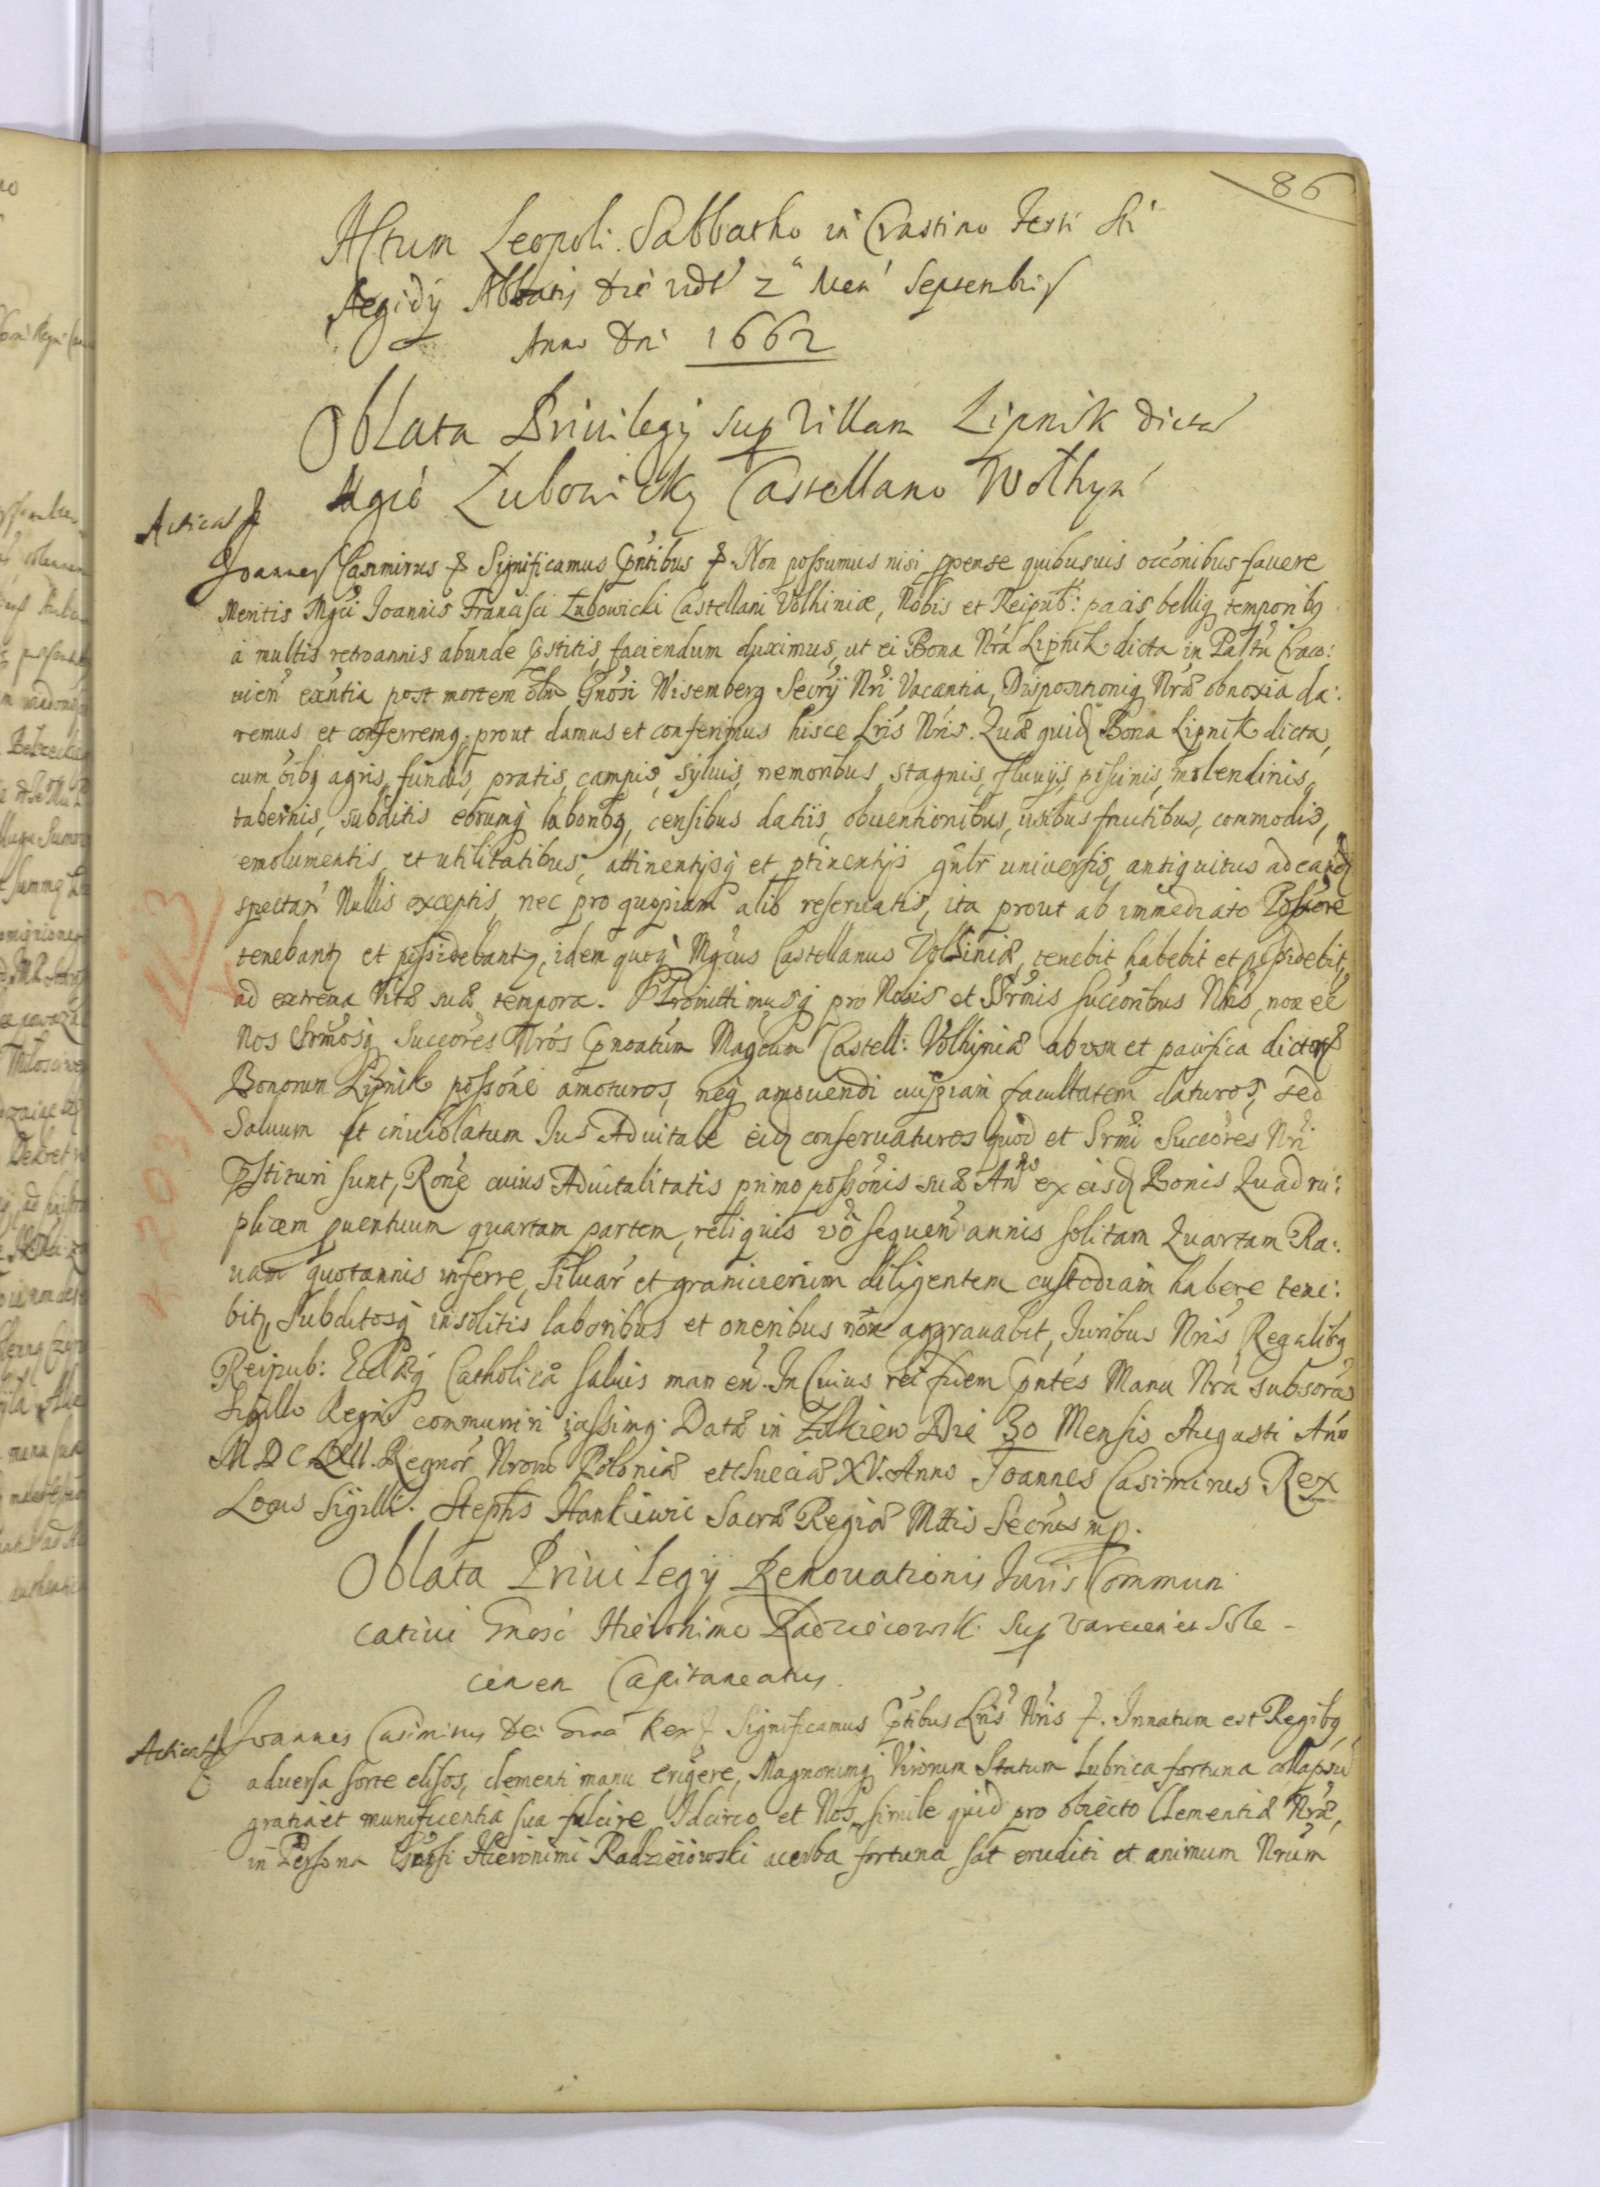 86
Actum Leopoli Sabbatho in Crastino Festi Sti
Aegidij Abbatis die vidt 2a Men Septembris
Anno Dni 1662
Oblata Privilegij sup Villam Lipnik dictã
Mgco Łubowicky Castellano Wołhyn
Acticat
Joannes Casimirus & Significamus Pntibus & Non possumus nisi ppense quibusuis occõnibus fauere
Meritis Mgci Joannis Francisci Łubowicki Castellani Volhiniæ, Nobis et Reipub: pacis belliq temporibq
à multis retroannis abunde pstitis, faciendum duximus, ut ei Bona Nrã Lipnik dicta in Paltũ Craco:
vien exñtia post mortem olim Gnosi Wisemberg Secrij Nri Vacantia, Dispositioniq Nræ obnoxia da:
remus et conferremq, prout damus et conferimus hisce Lris Nris. Quæ quidẽ Bona Lipnik dicta,
cum oibq agris, fundis, pratis, campis, syluis, nemoribus, stagnis, fluuijs, piscinis, molendinis,
tabernis, subditis eorumq laboribq, censibus datiis, obuentionibus, usibus fructibus, commodis,
emolumentis, et utilitatibus, attinentijsq et ptinentijs gnlr universis, antiquitus ad eandẽ
spectan Nullis exceptis, nec pro quopiam alio reseruatis, ita prout ab immediato Possore
tenebantq et possidebantq, idem quoq Mgcus Castellanus Volhiniæ, tenebit habebit et possidebit,
ad extrema Vitæ suæ tempora. Promittimusq pro Nobis et Srmis succoribus Nris, non ee
Nos Srmosq Succores Nros Pnoatum Magcum Castell: Volhyniæ ab usu et pacifica dictor
Bonorum Lipnik possone amoturos, neq amouendi cuipiam facultatem daturos, sed
Saluum et inuiolatum Jus Aduitale eidẽ conseruaturos quod et Srmi Succores Nri
pstituri sunt, Rone cuius Aduitalitatis primo possonis suæ Anno ex eisdẽ Bonis Quadru:
plicem puentuum quartam partem, reliquis vo sequen annis solitam Quartam Ra:
uam quotannis inferre, Siluar et granicierum diligentem custodiam habere tene:
bitq, Subditosq insolitis laboribus et oneribus non aggrauabit, Juribus Nris Regalibq
Reipub: Ecclæq Catholicæ saluis manen. In Cuius rei fidem Pntes Manu Nra subscras
Sigillo Regni communiri iussimq. Datæ in Zolkiew Die 30 Mensis Augusti Ano
MDCLXII. Regnor Nroru Poloniæ et Sueciæ XV. Anno Joannes Casimirus Rex
Locus Sigilli. Stephs Hankiewic Sacræ Regiæ Mttis Secrius mp.
Oblata Privilegij Renouationis Juris Commun
catiui Gnoso Hieronimo Radzieiowsk sup Varcien et Sole-
cien en Capitaneatus
Acticat
Joannes Casimirus Dei Graã Rex & Significamus Pntibus Lris Nris &. Innatum est Regibq,
aduersa sorte elisos, clementi manu erigere, Magnorumq Virorum Statum lubrica fortuna collapsũ
gratia et munificentia sua fulcire. Idcirco et Nos simile quid pro obiecto Clementiæ Nræ,
in Persona Gnosi Hieronimi Radzieiowski acerba fortuna sat eruditi et animum Nrum